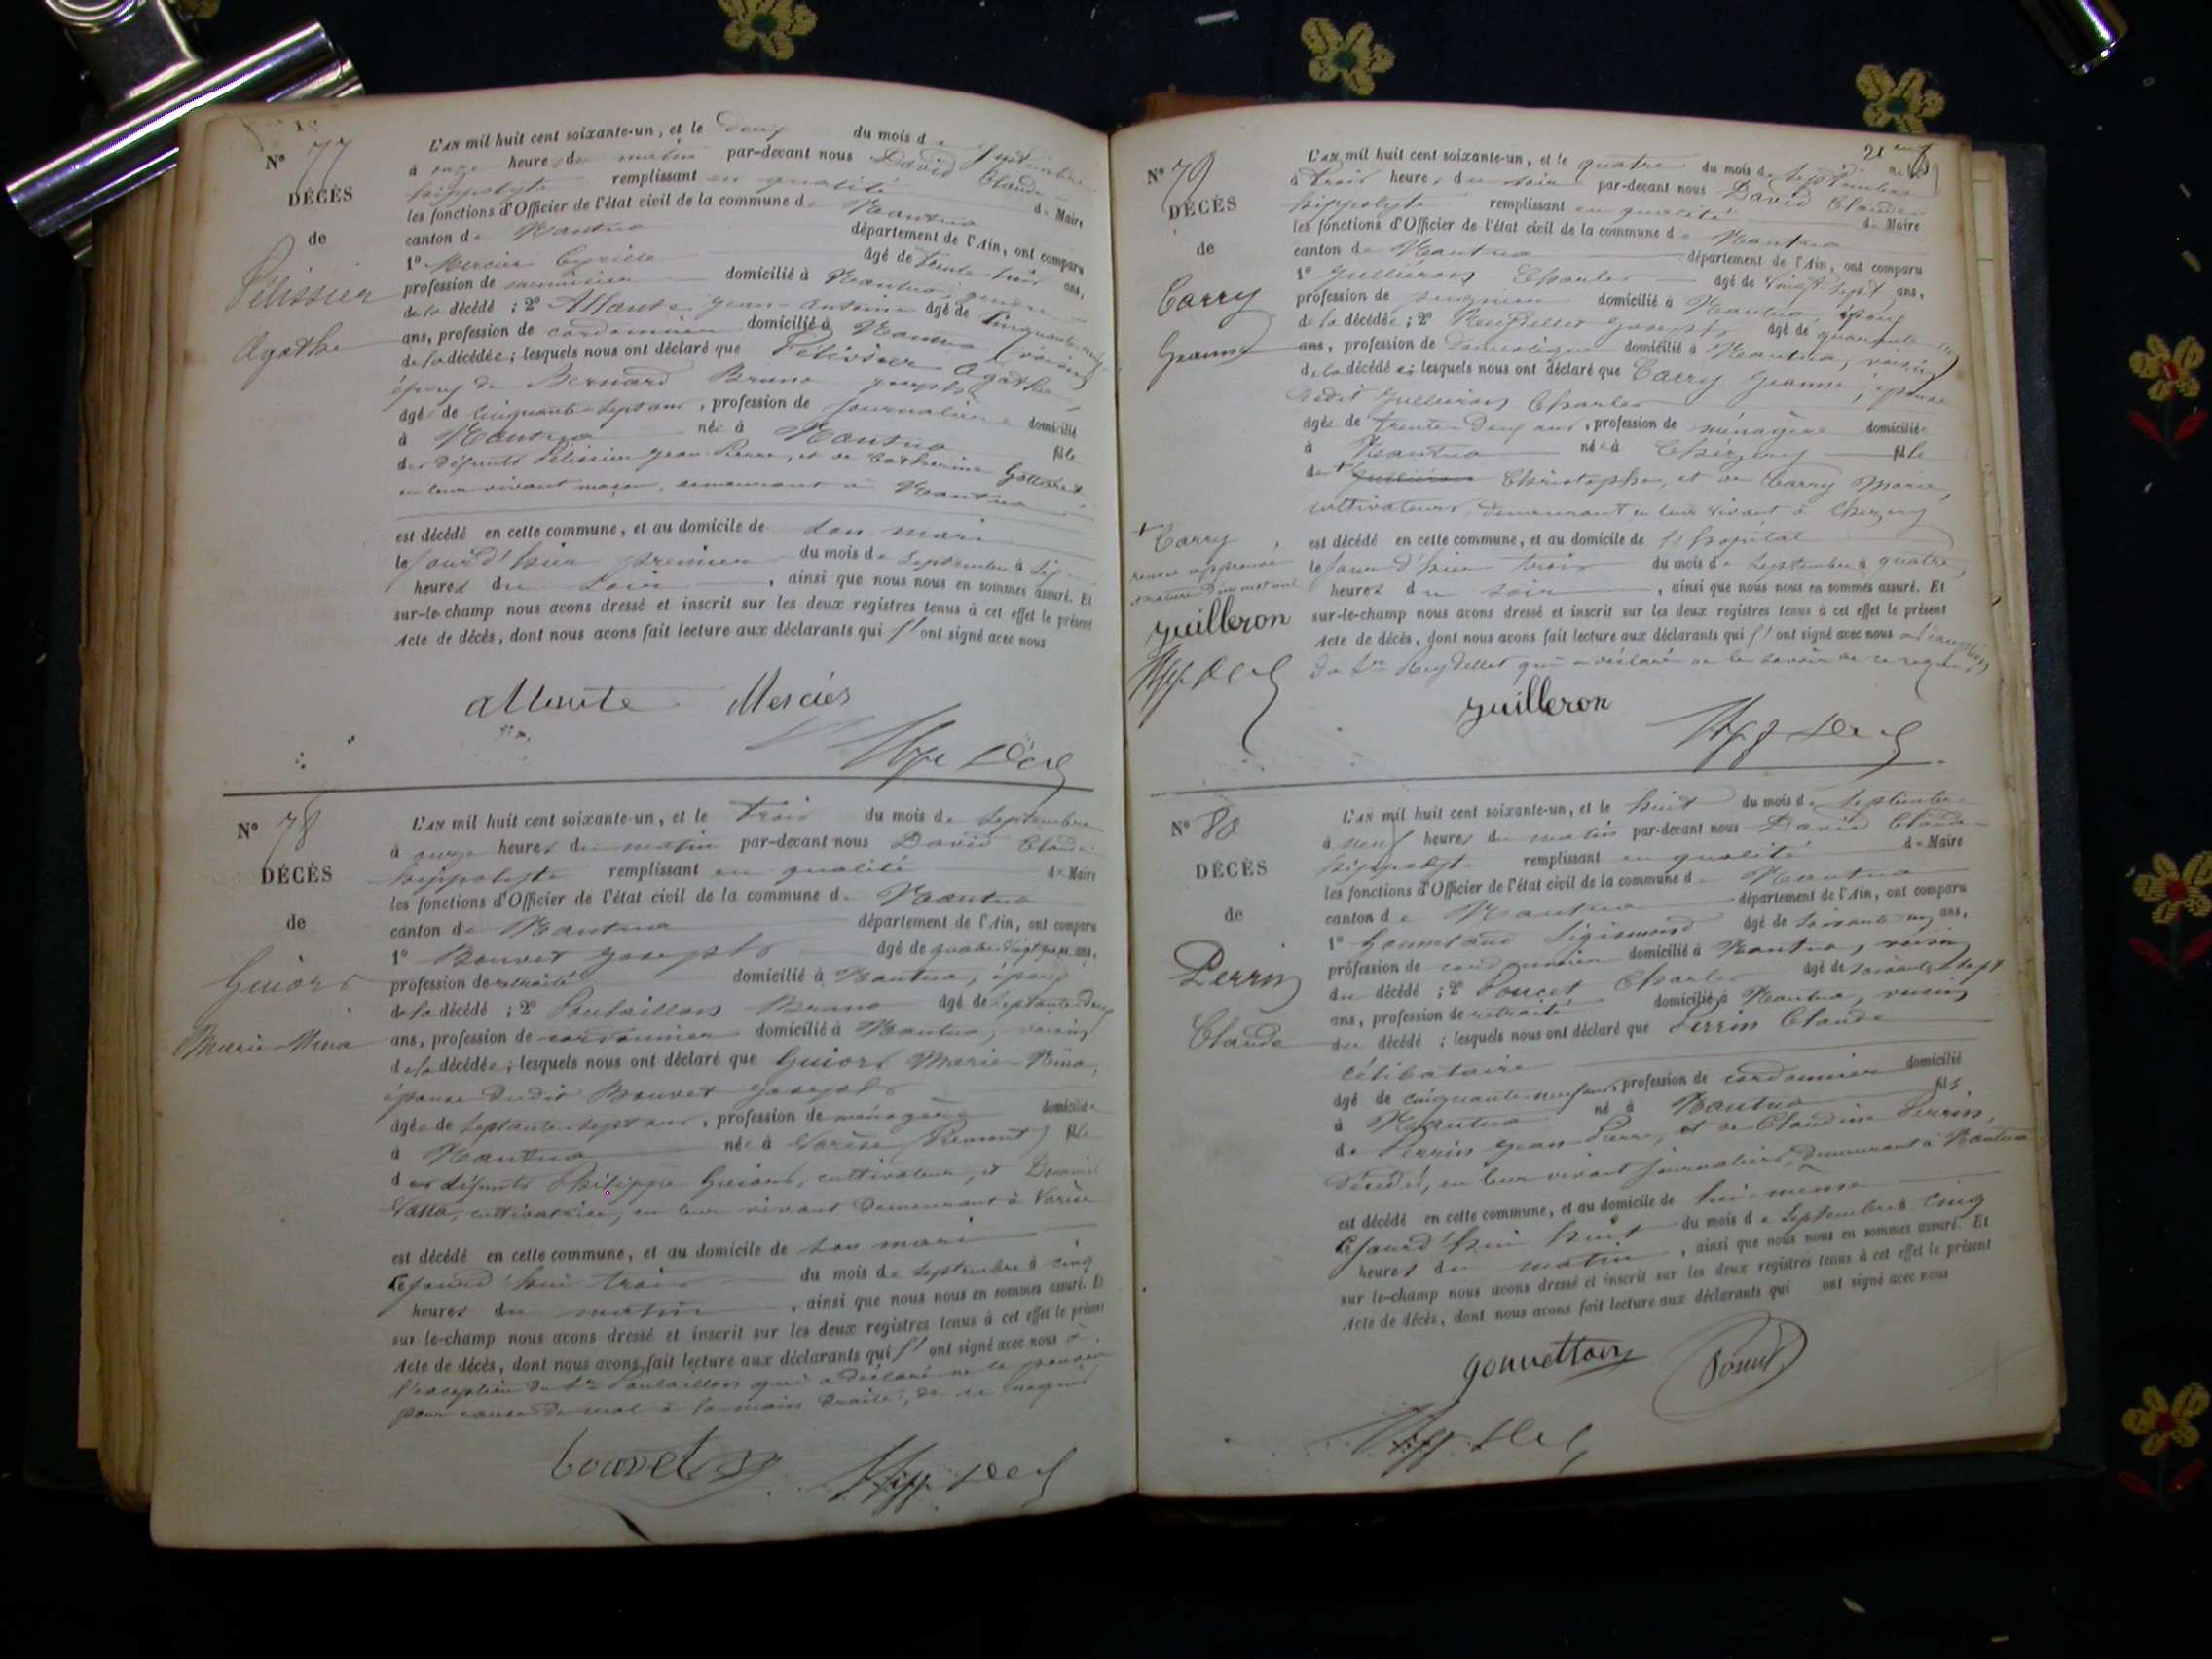 N° 77
DÉCÈS
de
Pélissier
Agathe
L'AN mil huit cent soixante-un, et le deux du mois de septembre
à onze heures du matin par-devant nous David Claude
hippolyte remplissant en qualité de Maire
les fonctions d'Officier de l'état civil de la commune de Nantua
canton de Nantua département de l'Ain, ont comparu
1° Mercier Cyrille âgé de trente-trois ans,
profession de domicilié à Nantua, gendre
de la décédé ; 2° Allante Jean-Antoine âgé de cinquante-neuf
ans, profession de cordonnier domicilié à Nantua voisin
de la décédée ; lesquels nous ont déclaré que Pélissier Agathe
épouse de Bernard Bruno Joseph
âgé de cinquante-sept ans, profession de journalière domicilié
à Nantua née à Nantua fille
des défunts Pélissier Jean-Pierre, et de Catherine
en leur vivant maçon, demeurant à Nantua
est décédé en cette commune, et au domicile de son mari
le jour d'hier premier du mois de septembre à six
heures du soir, ainsi que nous nous en sommes assuré. Et
sur-le-champ nous avons dressé et inscrit sur les deux registres tenus à cet effet le présent
Acte de décès, dont nous avons fait lecture aux déclarants qui l'ont signé avec nous
allante Mercier
N° 78
DÉCÈS
de
Guiord
Marie-Nina
L'AN mil huit cent soixante-un, et le trois du mois de septembre
à onze heures du matin par-devant nous David Claude
hippolyte remplissant en qualité de Maire
les fonctions d'Officier de l'état civil de la commune de Nantua
canton de Nantua département de l'Ain, ont comparu
1° Bouvet Joseph âgé de quatre-vingt ans,
profession de retraité domicilié à Nantua, époux
de la décédé ; 2° Poulaillon Bruno âgé de septante-deux
ans, profession de cordonnier domicilié à Nantua, voisin
de la décédée ; lesquels nous ont déclaré que Guiord Marie-Nina,
épouse dudit Bouvet Joseph
âgée de septante-sept ans, profession de ménagère domiciliée
à Nantua née à Varèse (Piémont) fille
des défunts Philippe Guiord, cultivateur, et
cultivatrice, en leur vivant demeurant à Varèse
est décédé en cette commune, et au domicile de son mari
cejourd'hui trois du mois de septembre à cinq
heures du matin, ainsi que nous nous en sommes assuré. Et
sur-le-champ nous avons dressé et inscrit sur les deux registres tenus à cet effet le présent
Acte de décès, dont nous avons fait lecture aux déclarants qui l'ont signé avec nous à
l'exception du Sr Poulaillon qui a déclaré ne le pouvoir
pour cause de mal à la main droite, de ce requis
bouvet
N° 79
DÉCÈS
de
Carry
Jeanne
L'AN mil huit cent soixante-un, et le quatre du mois de septembre
à trois heures du soir par-devant nous David Claude
hippolyte remplissant en qualité de Maire
les fonctions d'Officier de l'état civil de la commune de Nantua
canton de Nantua département de l'Ain, ont comparu
1° Juilleron Charles âgé de vingt-sept ans,
profession de peignier domicilié à Nantua, époux
de la décédée ; 2° Reydellet Joseph âgé de quarante
ans, profession de domestique domicilié à Nantua, voisin
de la décédée ; lesquels nous ont déclaré que Carry Jeanne, épouse
dudit Juilleron Charles
âgée de trente-deux ans, profession de ménagère domiciliée
à Nantua née à Chézery fille
de + Juilleron Christophe, et de Carry Marie,
cultivateurs, demeurant en leur vivant à Chézery
est décédé en cette commune, et au domicile de l'hôpital
le jour d'hier trois du mois de septembre à quatre
heures du soir, ainsi que nous nous en sommes assuré. Et
sur-le-champ nous avons dressé et inscrit sur les deux registres tenus à cet effet le présent
Acte de décès, dont nous avons fait lecture aux déclarants qui l'ont signé avec nous à l'exception
du Sr Reydellet qui a déclaré ne le savoir de ce requis
+ Carry
juilleron
juilleron
N° 80
DÉCÈS
de
Perrin
Claude
L'AN mil huit cent soixante-un, et le huit du mois de septembre
à neuf heures du matin par-devant nous David Claude
hippolyte remplissant en qualité de Maire
les fonctions d'Officier de l'état civil de la commune de Nantua
canton de Nantua département de l'Ain, ont comparu
1° Gonnettand Sigismond âgé de soixante ans,
profession de cordonnier domicilié à Nantua, voisin
du décédé ; 2° Poncet Charles âgé de soixante-sept
ans, profession de retraité domicilié à Nantua, voisin
du décédé ; lesquels nous ont déclaré que Perrin Claude
célibataire
âgé de cinquante-neuf ans, profession de cordonnier domicilié
à Nantua né à Nantua fils
de Perrin Jean-Pierre, et de Claudine Perrin,
décédés, en leur vivant journaliers, demeurant à Nantua
est décédé en cette commune, et au domicile de lui-même
cejourd'hui huit du mois de septembre à cinq
heures du matin, ainsi que nous nous en sommes assuré. Et
sur le-champ nous avons dressé et inscrit sur les deux registres tenus à cet effet le présent
Acte de décès, dont nous avons fait lecture aux déclarants qui ont signé avec nous
Poncet